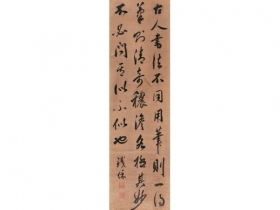 古人書法不同用筆則一得
筆則清奇穠澹各極其妙
不必問其似不似也 鐵保